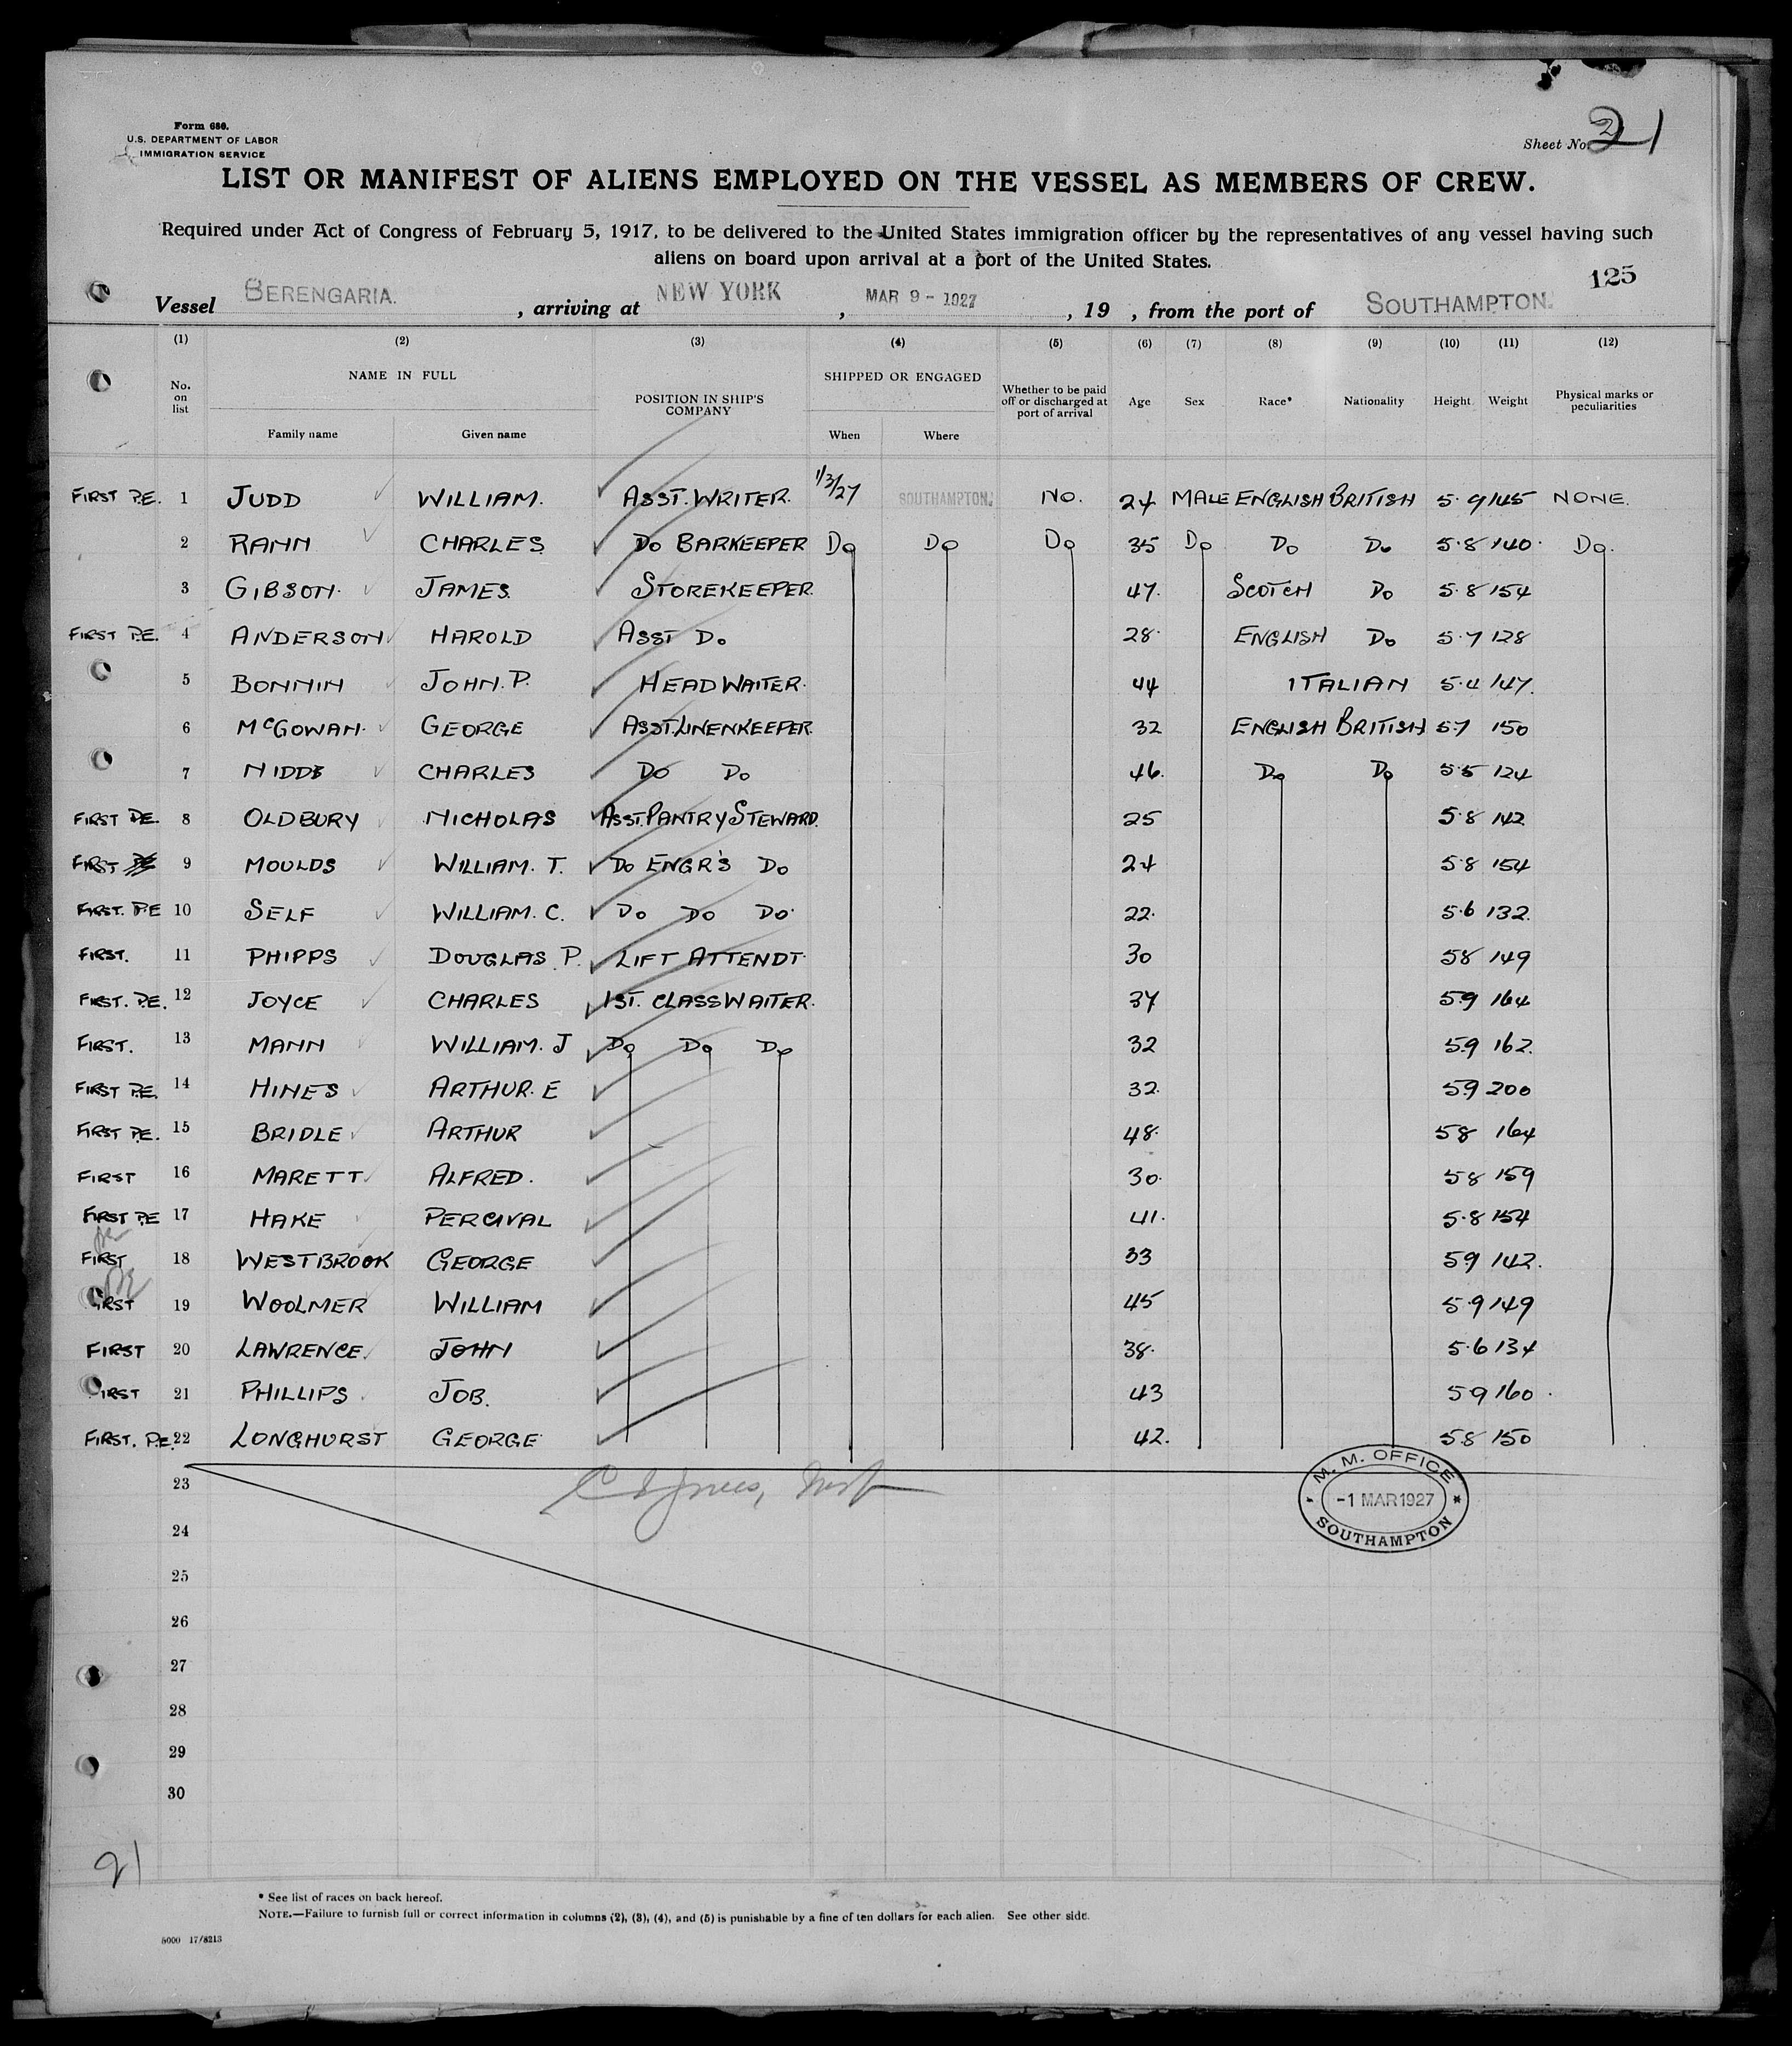 Form 680.
U.S. DEPARTMENT OF LABOR
IMMIGRATION SERVICE
Sheet No. 21
LIST OR MANIFEST OF ALIENS EMPLOYED ON THE VESSEL AS MEMBERS OF CREW.
Required under Act of Congress of February 5, 1917, to be delivered to the United States immigration officer by the representatives of any vessel having such
aliens on board upon arrival at a port of the United States.
125
Vessel BERENGARIA. , arriving at NEW YORK , MAR 9 - 1927 , 19 , from the port of SOUTHAMPTON.
(1) (2) (3) (4) (5) (6) (7) (8) (9) (10) (11) (12)
No. on list NAME IN FULL Family name Given name POSITION IN SHIP'S COMPANY SHIPPED OR ENGAGED When Where Whether to be paid off or discharged at port of arrival Age Sex Race* Nationality Height Weight Physical marks or peculiarities
FIRST P.E. 1 JUDD WILLIAM. ASST. WRITER. 1/3/27 SOUTHAMPTON. NO. 24 MALE ENGLISH BRITISH 5.9 145 NONE.
2 RANN CHARLES. DO BARKEEPER DO DO DO 35 DO DO DO 5.8 140. DO.
3 GIBSON. JAMES. STOREKEEPER. 47. SCOTCH DO 5.8 154
FIRST P.E. 4 ANDERSON HAROLD ASST DO. 28. ENGLISH DO 5.7 128
5 BONNIN JOHN. P. HEAD WAITER. 44 ITALIAN 5.4 147.
6 McGOWAN. GEORGE ASST. LINENKEEPER. 32 ENGLISH BRITISH 5.7 150
7 NIDDS CHARLES DO DO 46. DO DO 5.5 124
FIRST P.E. 8 OLDBURY NICHOLAS ASST. PANTRY STEWARD. 25 5.8 142
FIRST PE 9 MOULDS WILLIAM. T. DO ENGR'S DO 24 5.8 154
FIRST. P.E 10 SELF WILLIAM. C. DO DO DO. 22. 5.6 132.
FIRST. 11 PHIPPS DOUGLAS. P. LIFT ATTENDT. 30 58 149
FIRST. P.E. 12 JOYCE CHARLES 1ST. CLASS WAITER. 37 5.9 164
FIRST. 13 MANN WILLIAM. J DO DO DO 32 5.9 162.
FIRST P.E. 14 HINES ARTHUR. E 32. 5.9 200
FIRST P.E. 15 BRIDLE ARTHUR 48. 58 164
FIRST 16 MARETT ALFRED. 30. 58 159
FIRST P.E 17 HAKE PERCIVAL 41. 5.8 154
FIRST 18 WESTBROOK GEORGE 33 59 142.
FIRST 19 WOOLMER WILLIAM 45 5.9 149
FIRST 20 LAWRENCE. JOHN 38. 5.6 134
FIRST 21 PHILLIPS JOB. 43 59 160.
FIRST. P.E. 22 LONGHURST GEORGE 42. 58 150
23
24
25
26
27
28
29
30
M. M. OFFICE
-1 MAR 1927
SOUTHAMPTON
21
* See list of races on back hereof.
NOTE.—Failure to furnish full or correct information in columns (2), (3), (4), and (5) is punishable by a fine of ten dollars for each alien. See other side.
5000 17/8213